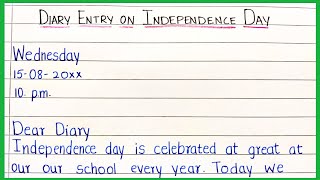 Diary Entry on Independence Day
Wednesday
15-08-20xx
10. p.m.
Dear Diary
Independence day is celebrated at great at
our our school every year. Today we